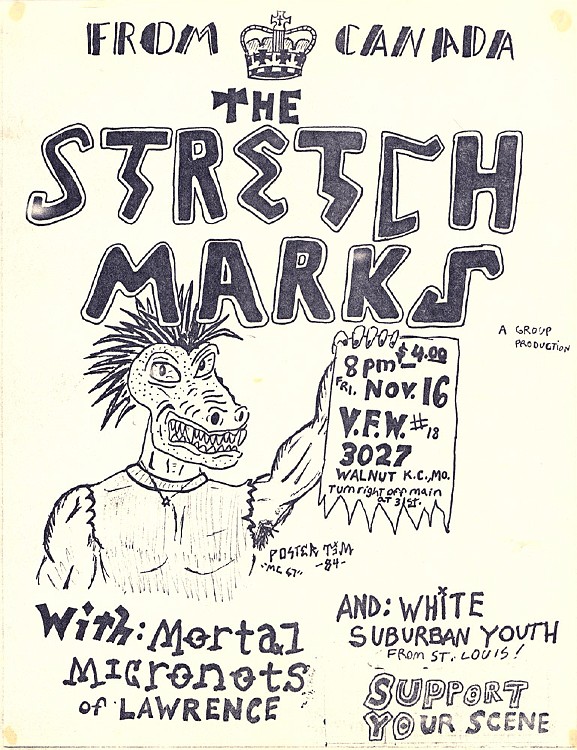 FROM CANADA
THE
STRETCH
MARKS
A GROUP
PRODUCTION
8pm $4.00
FRI. NOV. 16
V.F.W. #18
3027
WALNUT K.C., MO.
Turn right off main
at 31st.
POSTER TIM
-84-
With: Mortal
MICRONOTS
of LAWRENCE
AND: WHITE
SUBURBAN YOUTH
FROM ST. LOUIS!
SUPPORT
YOUR SCENE